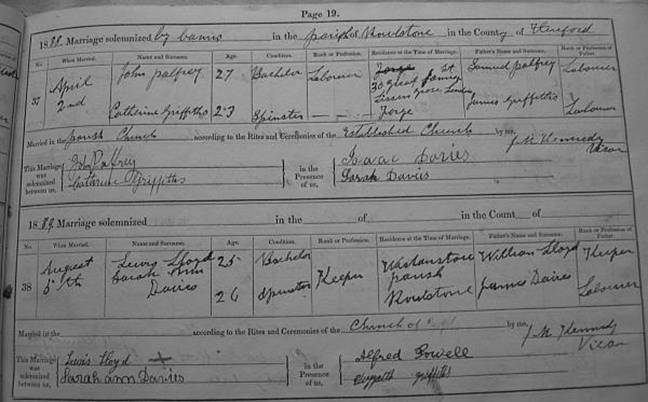 Page 19.
1888. Marriage solemnized by banns in the parish of Rowlstone in the County of Hereford
No. When Married. Name and Surname. Age. Condition. Rank or Profession. Residence at the Time of Marriage. Father's Name and Surname. Rank or Profession of Father.
37 April 2nd John Palfrey 27 Bachelor Labourer 30 Great James St. Lisson Grove London Samuel Palfrey Labourer
Catherine Griffiths 23 Spinster — — — Forge James Griffiths Labourer
Married in the parish Church according to the Rites and Ceremonies of the Established Church by me,
J M Kennedy
Vicar
This Marriage was solemnized between us,
John Palfrey
Catherine Griffiths
in the Presence of us,
Isaac Davies
Sarah Davies
1889. Marriage solemnized in the of in the Count of
No. When Married. Name and Surname. Age. Condition. Rank or Profession. Residence at the Time of Marriage. Father's Name and Surname. Rank or Profession of Father.
38 August 5th Lewis Lloyd 25 Bachelor Keeper parish William Lloyd Keeper
Sarah Ann Davies 26 Spinster Rowlstone James Davies Labourer
Married in the according to the Rites and Ceremonies of the Church of by me,
J M Kennedy
Vicar
This Marriage was solemnized between us,
Lewis Lloyd X
Sarah ann Davies
in the Presence of us,
Alfred Powell
Griffiths